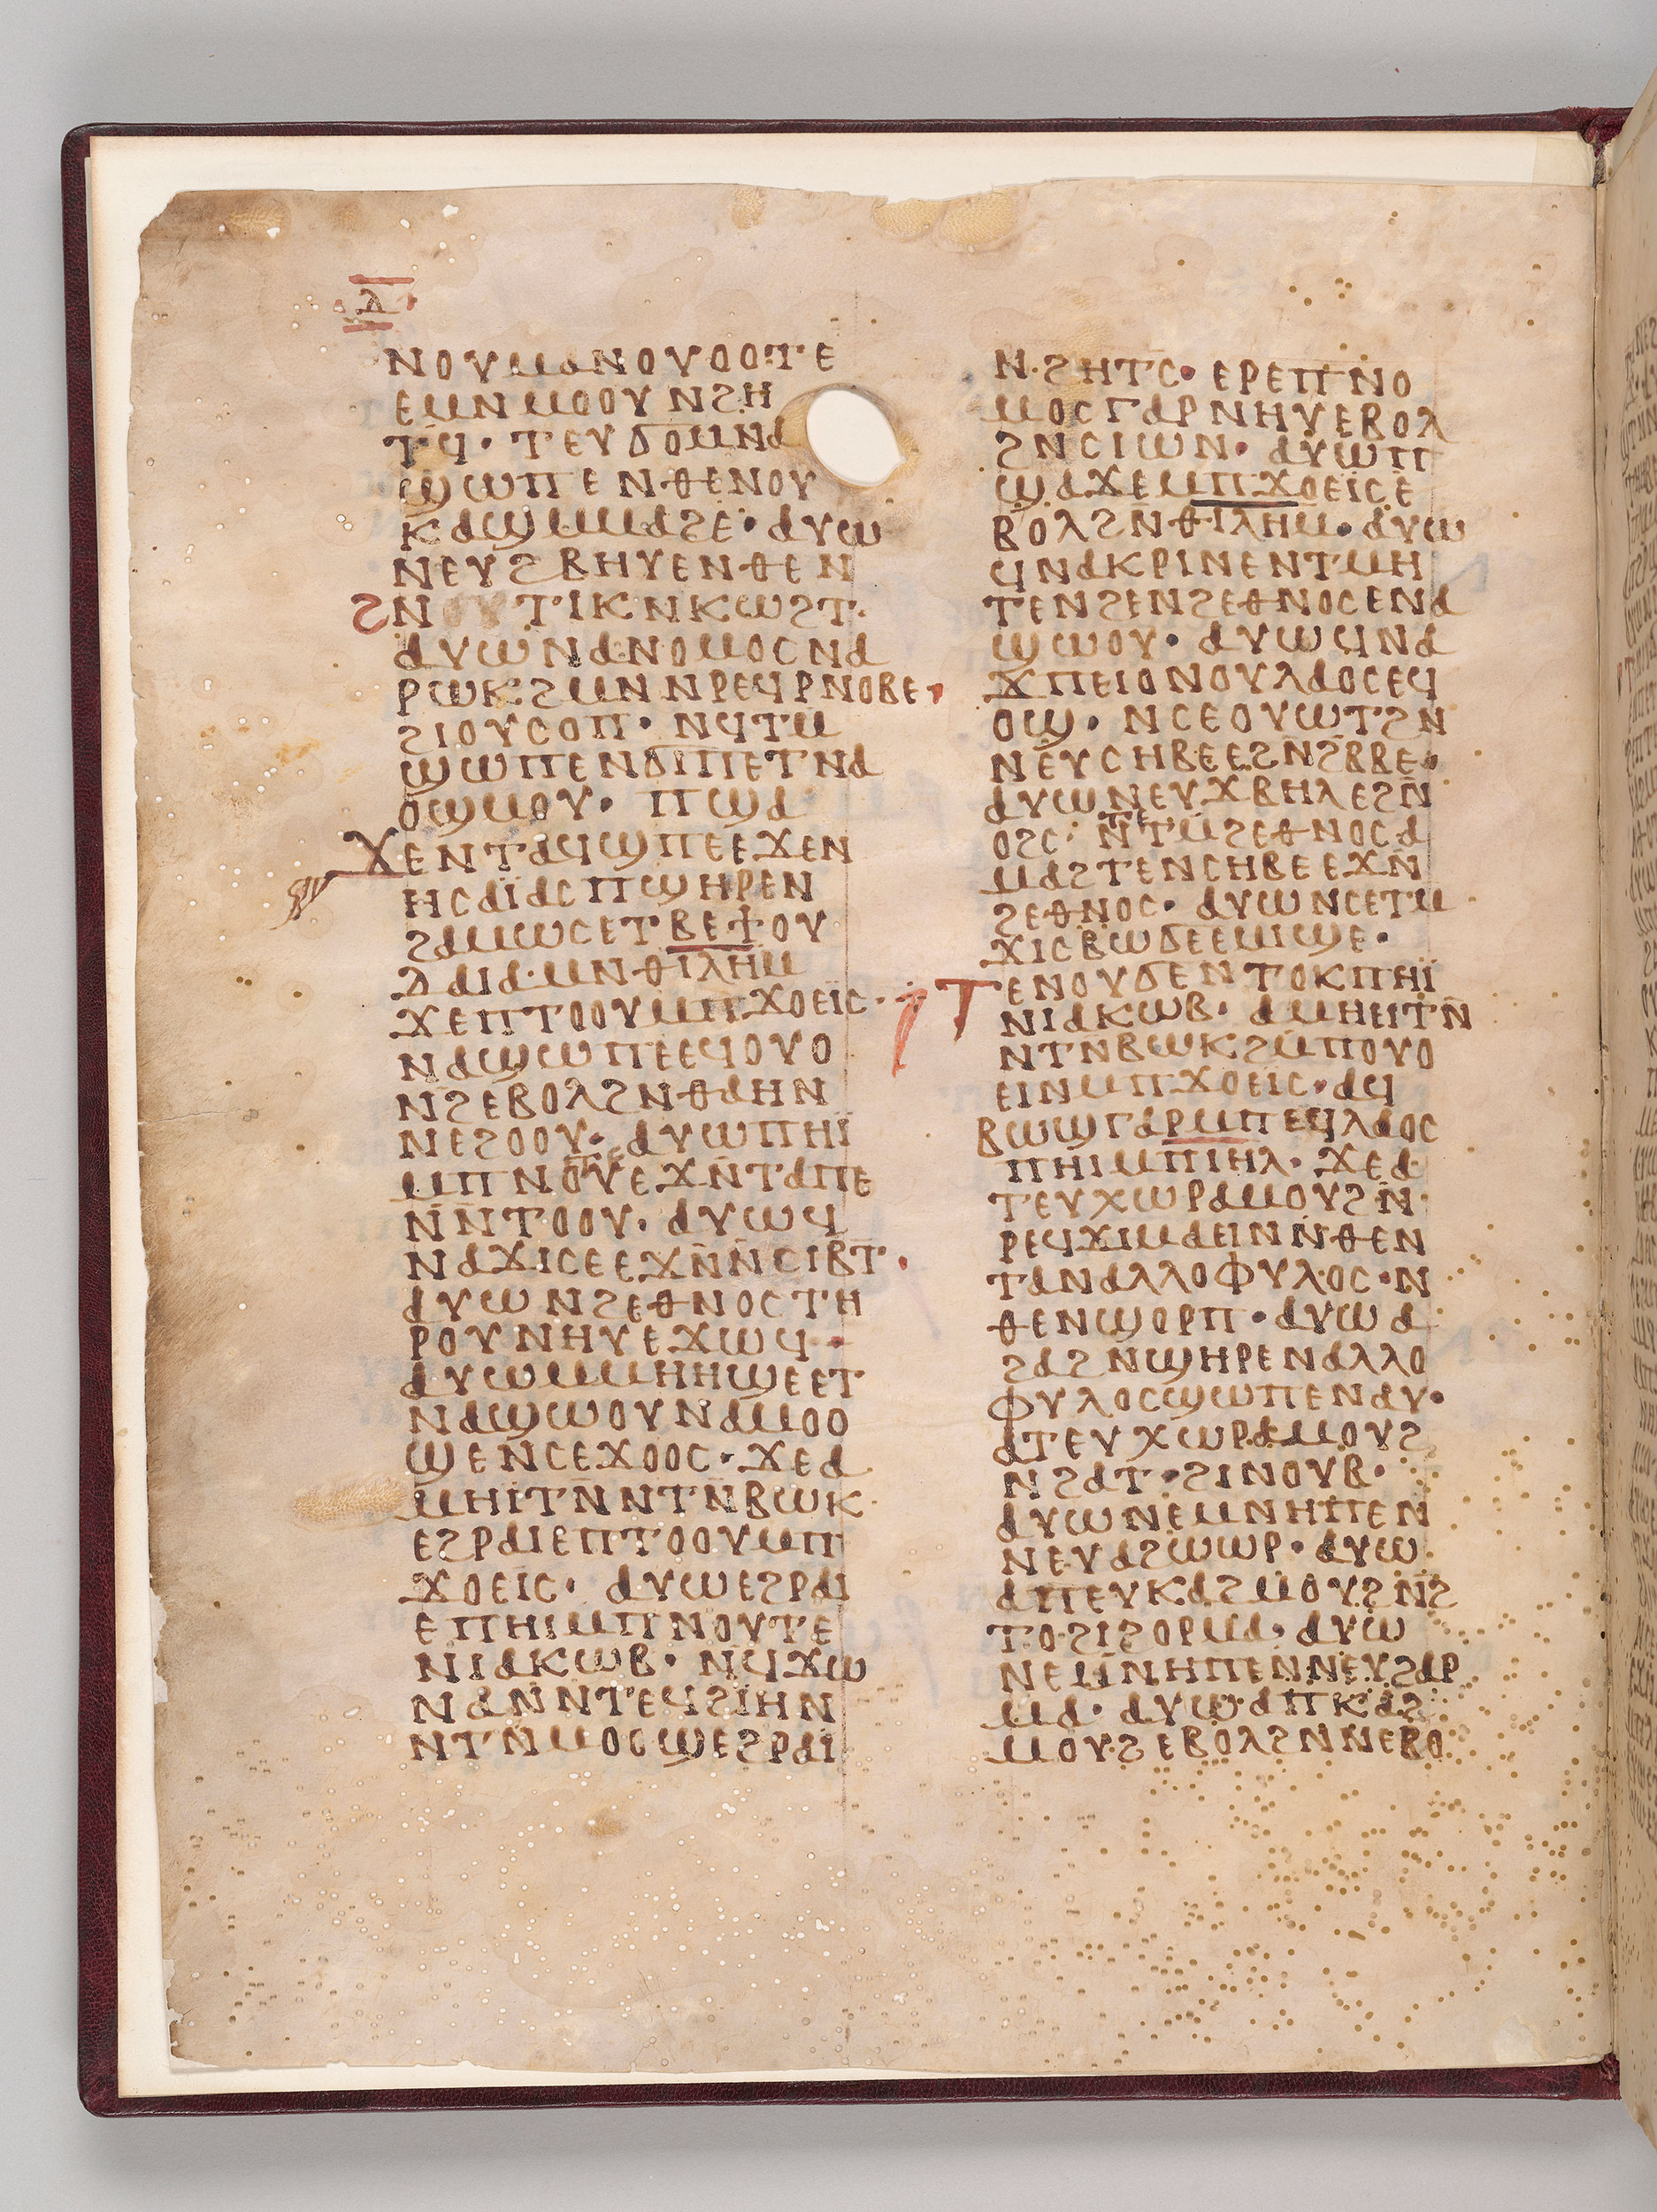 ⲗ
ⲛⲟⲩⲙⲁⲛⲟⲩⲟⲟⲧⲉ
ⲉⲙⲛⲙⲟⲟⲩⲛϩⲏ
ⲧϥ· ⲧⲉⲩϭⲟⲙⲛⲁ
ϣⲱⲡⲉⲛⲑⲉⲛⲟⲩ
ⲕⲁϣⲙⲙⲁϩⲉ· ⲁⲩⲱ
ⲛⲉⲩϩⲃⲏⲩⲉⲛⲑⲉⲛ
ϩⲛⲟⲩⲧⲓⲕⲛⲕⲱϩⲧ·
ⲁⲩⲱⲛⲁⲛⲟⲙⲟⲥⲛⲁ
ⲣⲱⲕϩⲙⲛⲛⲣⲉϥⲣⲛⲟⲃⲉ·
ϩⲓⲟⲩⲥⲟⲡ· ⲛϥⲧⲙ
ϣⲱⲡⲉⲛϭⲓⲡⲉⲧⲛⲁ
ⲟϣⲙⲟⲩ· ⲡϣⲁ
ϫⲉⲛⲧⲁϥϣⲡⲉⲉϫⲉⲛ
ⲏⲥⲁⲓ̈ⲁⲥⲡϣⲏⲣⲉⲛ
ϩⲁⲙⲱⲥⲉⲧⲃⲉϯⲟⲩ
ⲇⲁⲓⲁ·ⲙⲛⲑⲓⲗⲏⲙ
ϫⲉⲡⲧⲟⲟⲩⲙⲡϫⲟⲉⲓ̈ⲥ·
ⲛⲁϣⲱⲡⲉⲉϥⲟⲩⲟ
ⲛϩⲉⲃⲟⲗϩⲛⲑⲁⲏⲛ
ⲛⲉϩⲟⲟⲩ· ⲁⲩⲱⲡⲏⲓ̈
ⲙⲡⲛⲟⲩⲧⲉⲉϫⲛ̄ⲧⲁⲡⲉ
ⲛ̄ⲛ̄ⲧⲟⲟⲩ· ⲁⲩⲱϥ
ⲛⲁϫⲓⲥⲉⲉϫⲛ̄ⲛ̄ⲥⲓⲃⲧ·
ⲁⲩⲱⲛϩⲉⲑⲛⲟⲥⲧⲏ
ⲣⲟⲩⲛⲏⲩⲉϫⲱϥ·
ⲁⲩⲱⲙⲙⲏⲏϣⲉⲉⲧ
ⲛⲁϣⲱⲟⲩⲛⲁⲙⲟⲟ
ϣⲉⲛⲥⲉϫⲟⲟⲥ· ϫⲉⲁ
ⲙⲏⲓ̈ⲧⲛ̄ⲛⲧⲛ̄ⲃⲱⲕ
ⲉϩⲣⲁⲓⲉⲡⲧⲟⲟⲩⲙⲡ
ϫⲟⲉⲓⲥ· ⲁⲩⲱⲉϩⲣⲁⲓ
ⲉⲡⲏⲓⲙⲡⲛⲟⲩⲧⲉ
ⲛⲓⲁⲕⲱⲃ· ⲛϥϫⲱ
ⲛⲁⲛⲛⲧⲉϥϩⲓⲏⲛ
ⲛⲧⲛ̄ⲙⲟⲟϣⲉϩⲣⲁⲓ
ⲛ·ϩⲏⲧⲥ· ⲉⲣⲉⲡⲛⲟ
ⲙⲟⲥⲅⲁⲣⲛⲏⲩⲉⲃⲟⲗ
ϩⲛⲥⲓⲱⲛ· ⲁⲩⲱⲡ
ϣⲁϫⲉⲙⲡϫⲟⲉⲓ̈ⲥⲉ
ⲃⲟⲗϩⲛ̄ⲑⲓⲗⲏⲙ· ⲁⲩⲱ
ϥⲛⲁⲕⲣⲓⲛⲉⲛⲧⲙⲏ
ⲧⲉⲛϩⲉⲛϩⲉⲑⲛⲟⲥⲉⲛⲁ
ϣⲱⲟⲩ· ⲁⲩⲱϥⲛⲁ
ϫⲡⲉⲓⲟⲛⲟⲩⲗⲁⲟⲥⲉϥ
ⲟϣ· ⲛⲥⲉⲟⲩⲱⲧϩⲛ
ⲛⲉⲩⲥⲏⲃⲉⲉϩⲛϩⲃⲃⲉ·
ⲁⲩⲱⲛⲉⲩϫⲃⲏⲗⲉϩⲛ̄
ⲟϩⲥ· ⲛ̄ⲧⲉⲧⲙϩⲉⲑⲛⲟⲥⲁ
ⲙⲁϩⲧⲉⲛⲥⲏⲃⲉⲉϫⲛ̄
ϩⲉⲑⲛⲟⲥ· ⲁⲩⲱⲛⲥⲉⲧⲙ
ϫⲓⲥⲃⲱϭⲉⲉⲙⲓϣⲉ·
ⲧⲉⲛⲟⲩϭⲉⲛⲧⲟⲕⲡⲏⲓ̈
ⲛⲓⲁⲕⲱⲃ· ⲁⲙⲏⲉⲓⲧⲛ̄
ⲛⲧⲛⲃⲱⲕϩⲙⲡⲟⲩⲟ
ⲉⲓⲛⲙⲡϫⲟⲉⲓⲥ·ⲁϥ
ⲃⲱϣⲅⲁⲣⲙⲡⲉϥⲗⲁⲟⲥ
ⲡⲏⲓⲙⲡⲓⲏⲗ· ϫⲉⲁ
ⲧⲉⲩⲭⲱⲣⲁⲙⲟⲩϩⲛ̄·
ⲣⲉϥϫⲓⲙⲁⲉⲓⲛⲛ̄ⲑⲉⲛ
ⲧⲁⲛⲁⲗⲗⲟⲫⲩⲗⲟⲥ·ⲛ
ⲑⲉⲛϣⲟⲣⲡ· ⲁⲩⲱⲁ
ϩⲁϩⲛϣⲏⲣⲉⲛⲁⲗⲗⲟ
ⲫⲩⲗⲟⲥϣⲱⲡⲉⲛⲁⲩ·
ⲁⲧⲉⲩⲭⲱⲣⲁⲙⲟⲩϩ
ⲛϩⲁⲧ·ϩⲓⲛⲟⲩⲃ·
ⲁⲩⲱⲛⲉⲙⲛⲏⲡⲉⲛ
ⲛⲉⲩⲁϩⲱⲱⲣ· ⲁⲩⲱ
ⲁⲡⲉⲩⲕⲁϩⲙⲟⲩϩⲛ̄ϩ
ⲧⲟ·ϩⲓϩⲟⲣⲙⲁ· ⲁⲩⲱ
ⲛⲉⲙⲛ̄ⲏⲡⲉⲛⲛⲉⲩϩⲁⲣ
ⲙⲁ· ⲁⲩⲱ·ⲁⲡⲕⲁϩ
ⲙⲟⲩϩⲉⲃⲟⲗϩⲛⲛⲉⲃⲟ